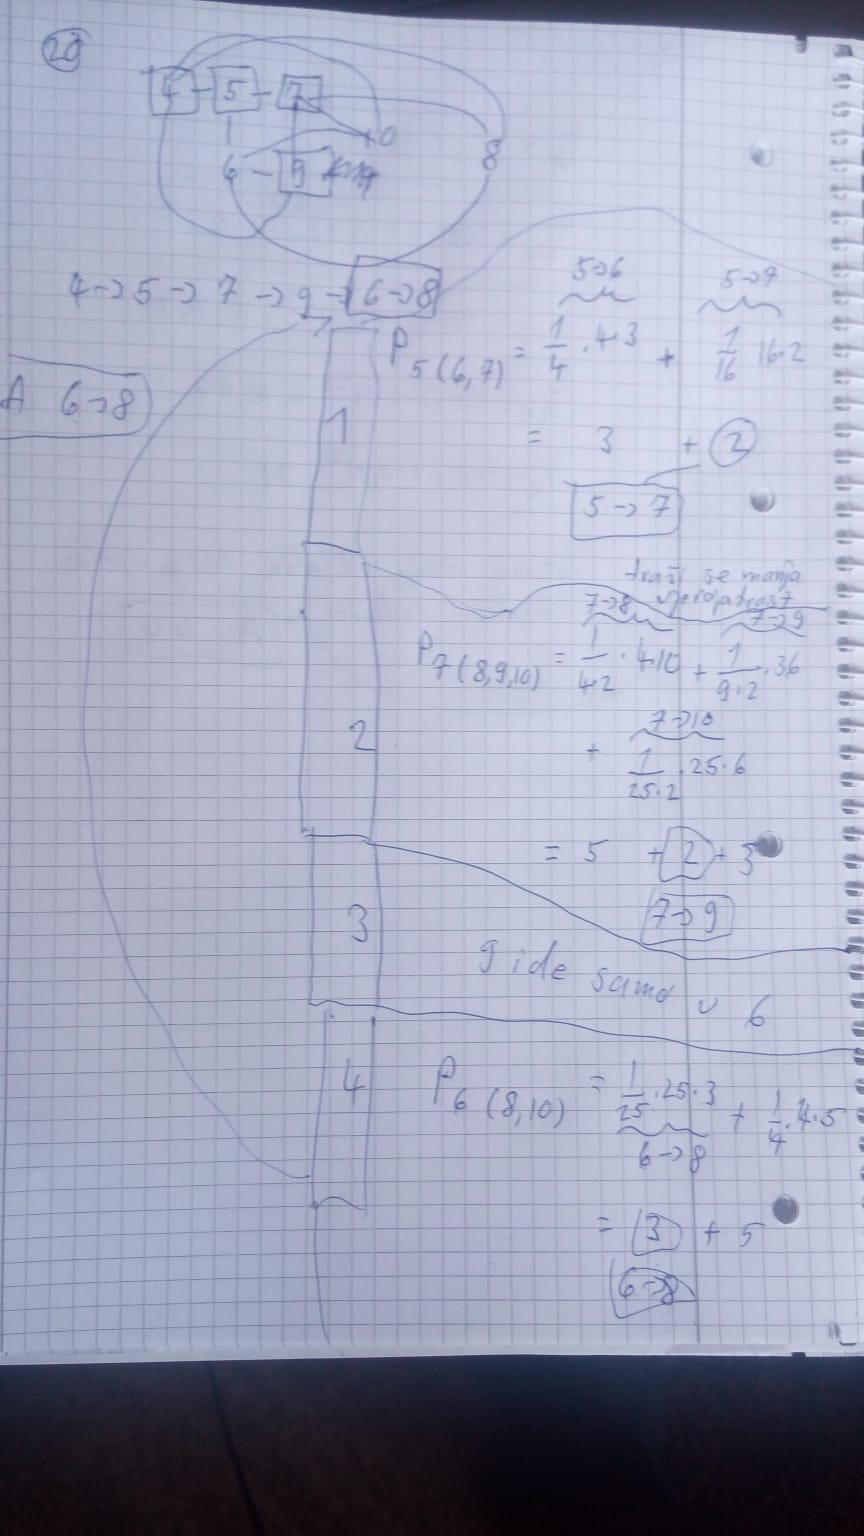 20
4 - 5 - 7
10
8
6 - 9
4 -> 5 -> 7 -> 9 -> 6 -> 8
A 6 -> 8
1
5->6 5->7
P5(6,7) = 1/4 · 4·3 + 1/16 16·2
= 3 + 2
5 -> 7
traži se manja
vjerojatnost
2
7->8 7->9
P7(8,9,10) = 1/4·2 · 4·10 + 1/9·2 · 36
7->10
+ 1/25·2 · 25·6
= 5 + 2 + 3
7->9
3
9 ide samo u 6
4
P6(8,10) = 1/25 · 25·3 + 1/4 · 4·5
6->8
= 3 + 5
6->8